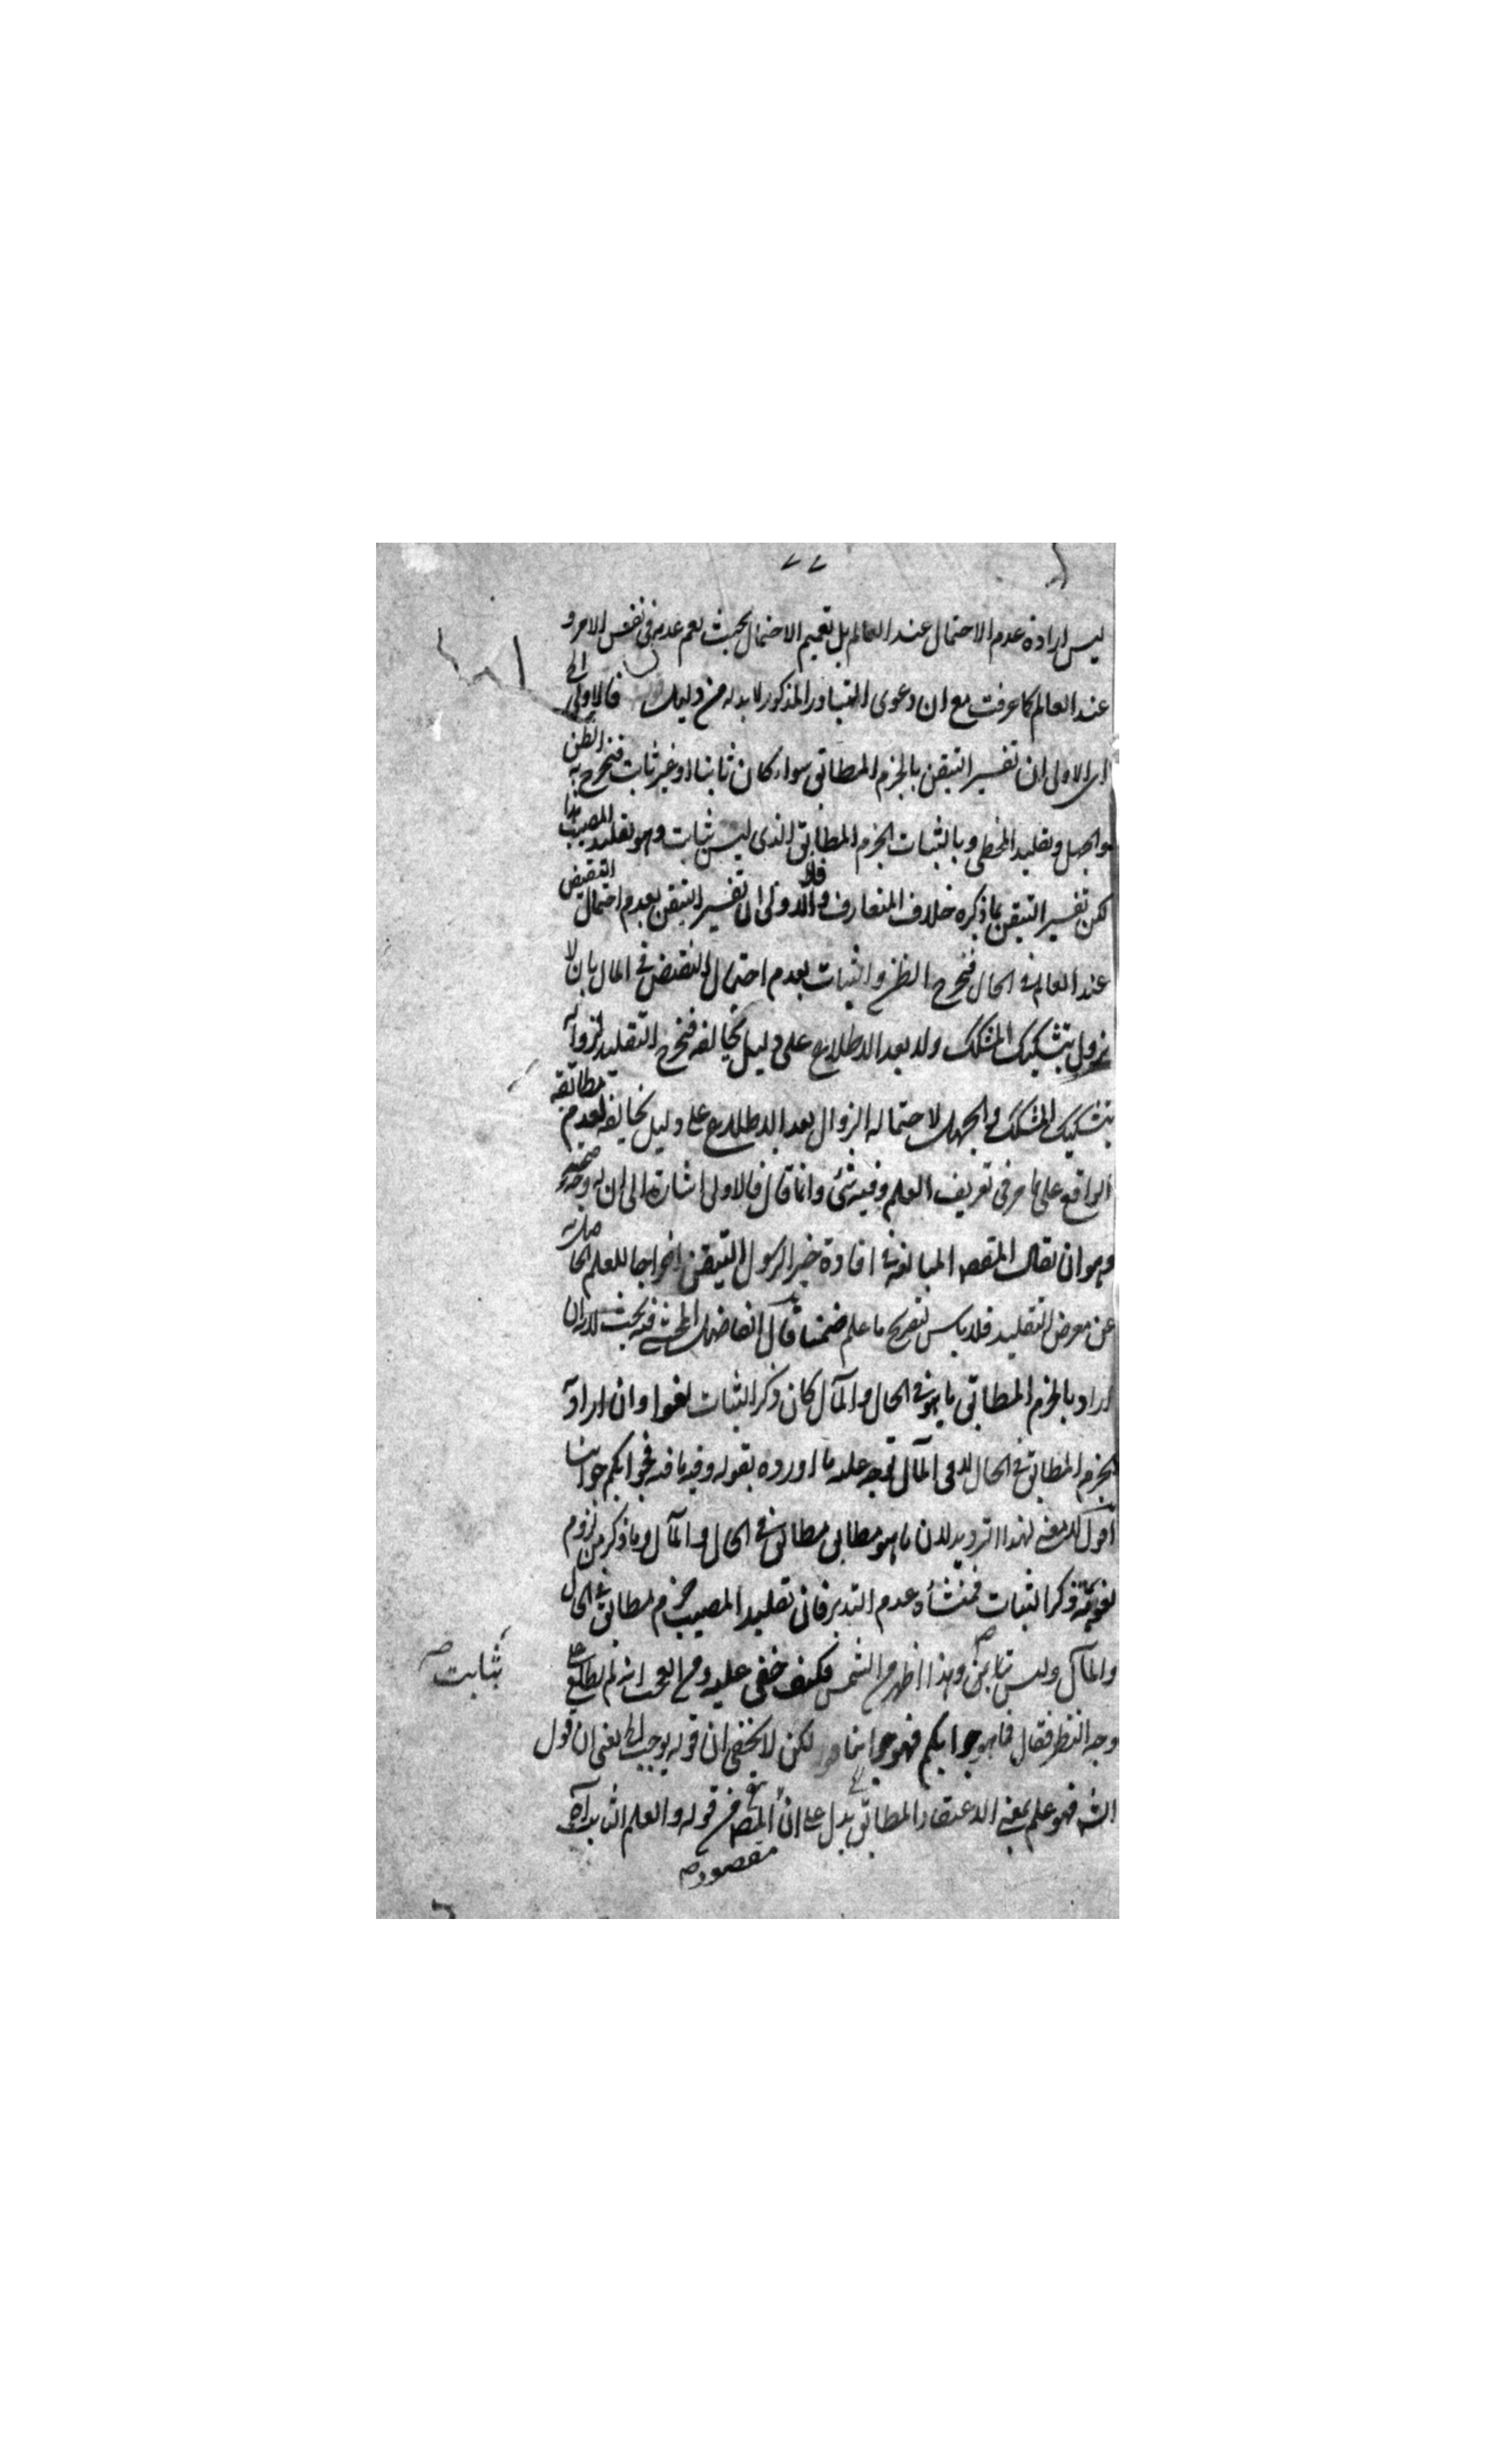 ٧٧
ليس ارادة عدم الاحتمال عند العالم بل تعميم الاحتمال بحيث يعم عدمه في نفس الامر و
عند العالم كما عرفت مع ان دعوى التبادر المذكور لا بد له من دليل فالاولى الخ
اى الاولى ان تفسير التيقن بالجزم المطابق سواء كان ثابتا او غير ثابت فيخرج به الظن
والجهل وتقليد المخطى وبالثبات الجزم المطابق الذى ليس بثابت وهو تقليد المصيب هذا
لكن تفسير التيقن بما ذكره خلاف المتعارف فالاولى ان تفسير التيقن بعدم احتمال النقيض
عند العالم فى الحال فيخرج الظن والثبات بعدم احتمال النقيض فى المال بان لا
يزول بتشكيك المشكك ولا بعد الاطلاع على دليل يخالفه فيخرج التقليد لزواله
بتشكيك المشكك والجهل لاحتماله الزوال بعد الاطلاع على دليل يخالفه لعدم مطابقه
الواقع على ما مر فى تعريف العلم وفيه شئ وانما قال فالاولى اشارة الى ان له وجه صحة
وهو ان يقال المقصد المبالغة فى افادة خبر الرسول التيقن اخراجا للعلم الحاصل به
عن معرض التقليد فلا باس بتصريح ما علم ضمنا قال الفاضل المحشى فيه بحث لانه ان
اراد بالجزم المطابق ما هو فى الحال والمآل كان ذكر الثبات لغوا وان اراد
الجزم المطابق فى الحال لا فى المآل توجه عليه ما اورده بقوله وفيه ما فيه فجوابكم جوابنا
اقول لا معنى لهذا الترديد لان ما هو مطابق مطابق فى الحال والمآل وما ذكر من لزوم
لغوية ذكر الثبات فمنشأه عدم التدبر فان تقليد المصيب جزم مطابق فى الحال
والمآل وليس بثابت وهذا اظهر من الشمس فكيف خفى عليه ومن العجب انه لم يطلع على
بثابت صح
وجه النظر فقال فما هو جوابكم فهو جوابنا لكن لا يخفى ان قوله يوجب الخ يعنى ان قول
الش فهو علم بمعنى الاعتقاد المطابق يدل على ان المص من قوله والعلم الثابت به آه
مقصود صح